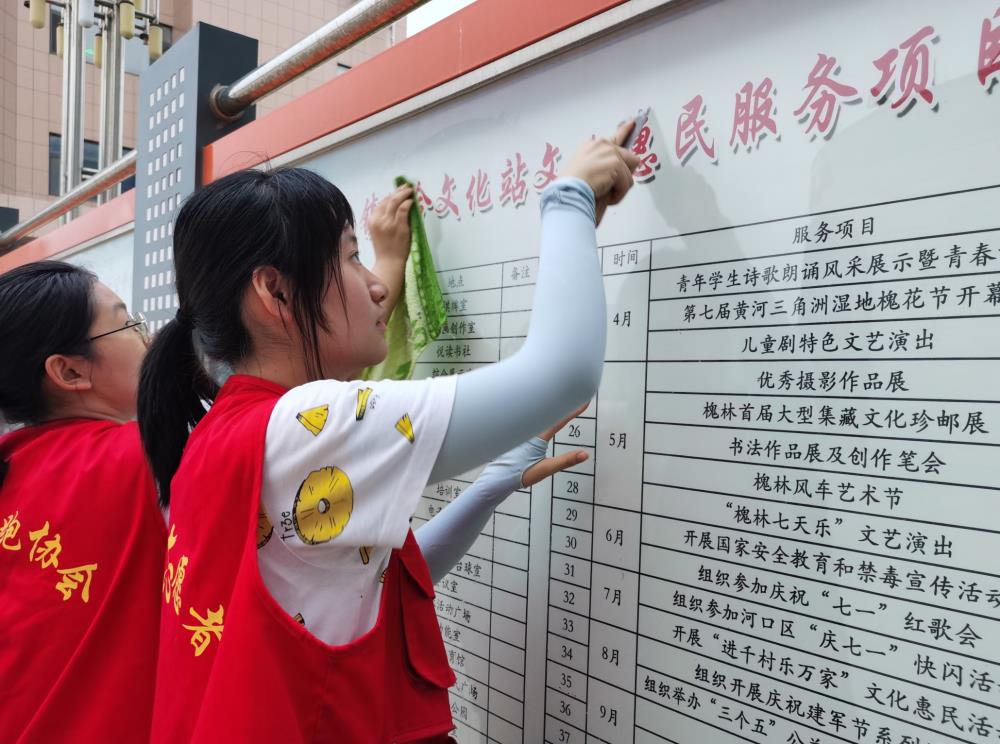 文化站文 惠民服务项目
地点
备注
时间
服务项目
棋牌室
画创作室
悦读书社
综合展示
培训室
台球室
议室
活动广场
能室
育馆
广场
公园
26
28
29
30
31
32
33
34
35
36
37
4月
5月
6月
7月
8月
9月
青年学生诗歌朗诵风采展示暨青春
第七届黄河三角洲湿地槐花节开幕
儿童剧特色文艺演出
优秀摄影作品展
槐林首届大型集藏文化珍邮展
书法作品展及创作笔会
槐林风车艺术节
“槐林七天乐”文艺演出
开展国家安全教育和禁毒宣传活动
组织参加庆祝“七一”红歌会
组织参加河口区“庆七一”快闪活
开展“进千村乐万家”文化惠民活
组织开展庆祝建军节系列
组织举办“三个五”公益
跑协会
愿者
tree